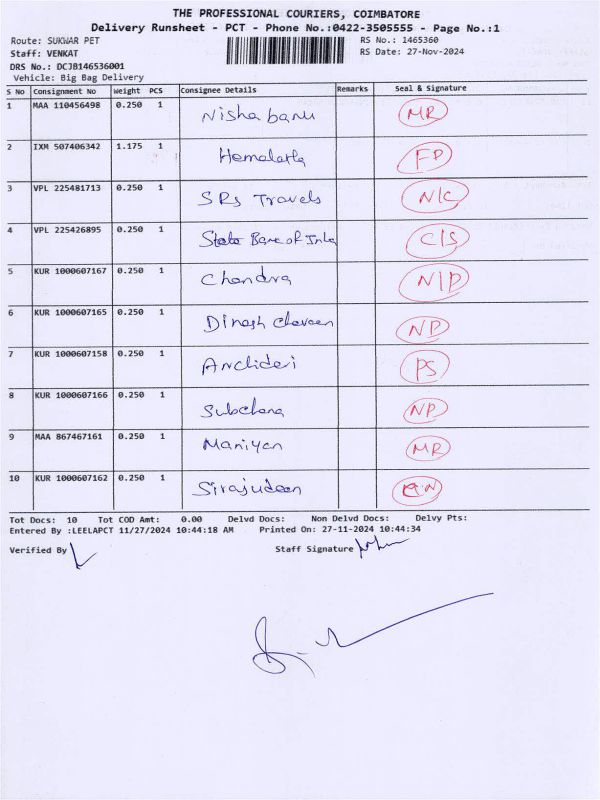 THE PROFESSIONAL COURIERS, COIMBATORE
Delivery Runsheet - PCT - Phone No.:0422-3505555 - Page No.:1
Route: SUKWAR PET RS No.: 1465360
Staff: VENKAT RS Date: 27-Nov-2024
DRS No.: DCJB146536001
Vehicle: Big Bag Delivery
S No Consignment No Weight PCS Consignee Details Remarks Seal & Signature
1 MAA 110456498 0.250 1 Nisha banu MR
2 IXM 507406342 1.175 1 Hemalatha FP
3 VPL 225481713 0.250 1 SRS Travels N/C
4 VPL 225426895 0.250 1 State Bank of C/S
5 KUR 1000607167 0.250 1 Chandra N/P
6 KUR 1000607165 0.250 1 Dinesh NP
7 KUR 1000607158 0.250 1 PS
8 KUR 1000607166 0.250 1 NP
9 MAA 867467161 0.250 1 Maniyan MR
10 KUR 1000607162 0.250 1 Sirajudeen
Tot Docs: 10 Tot COD Amt: 0.00 Delvd Docs: Non Delvd Docs: Delvy Pts:
Entered By :LEELAPCT 11/27/2024 10:44:18 AM Printed On: 27-11-2024 10:44:34
Verified By Staff Signature